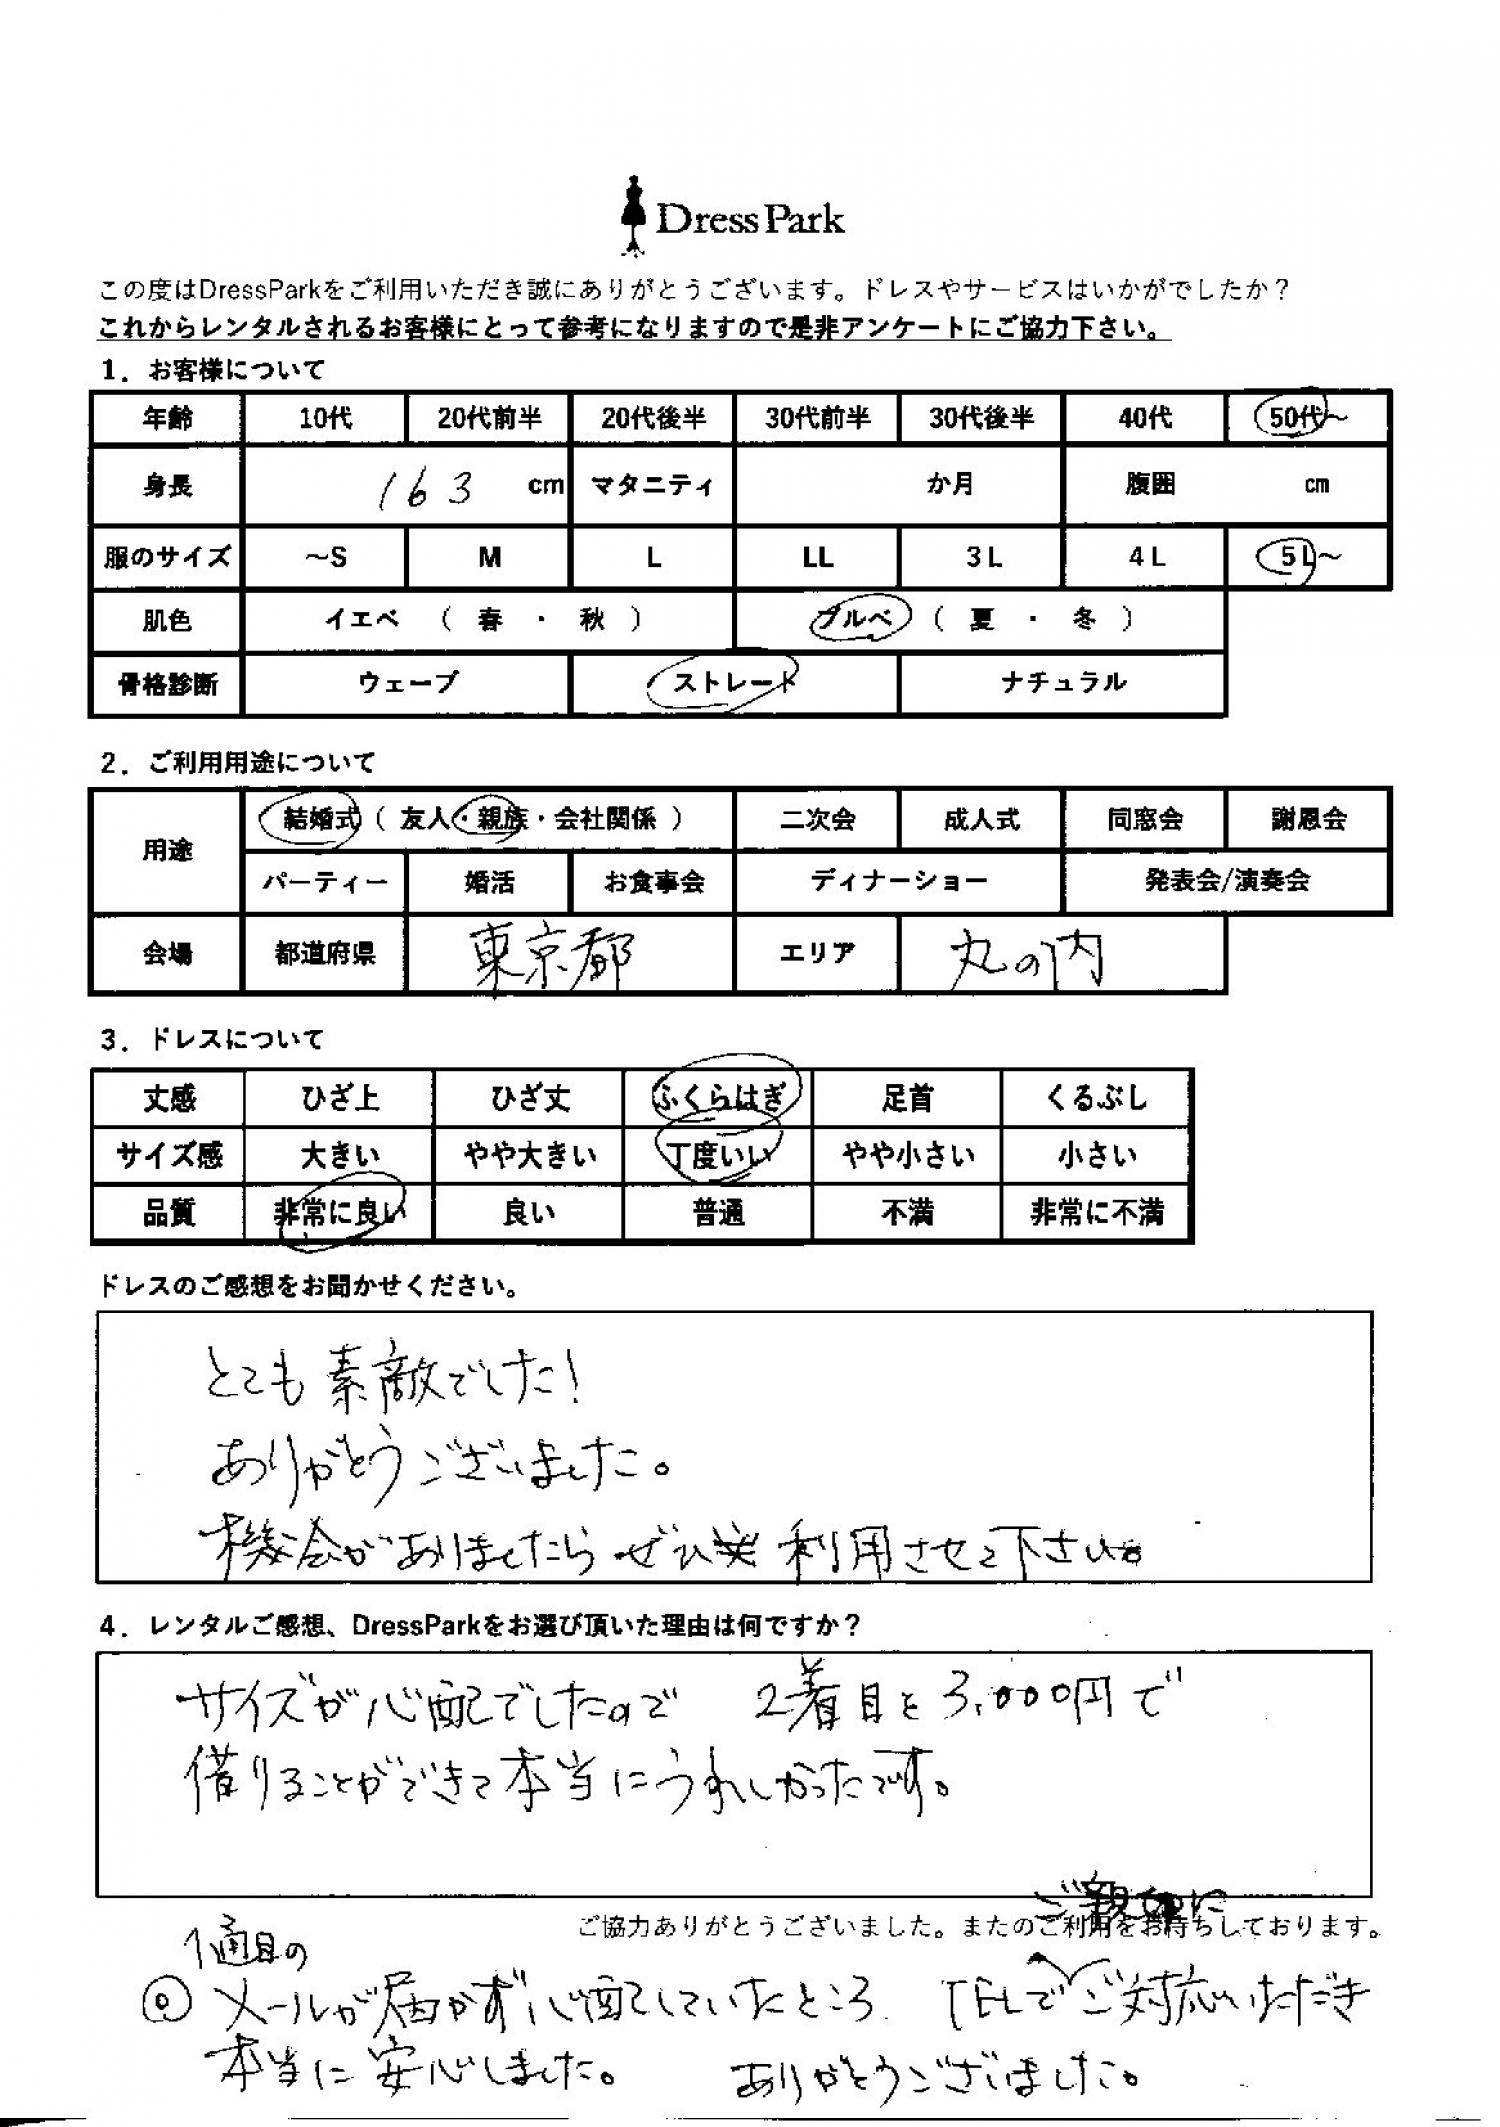 DressPark
この度はDressParkをご利用いただき誠にありがとうございます。ドレスやサービスはいかがでしたか？
これからレンタルされるお客様にとって参考になりますので是非アンケートにご協力下さい。
1．お客様について
年齢 10代 20代前半 20代後半 30代前半 30代後半 40代 50代～
身長 163 cm マタニティ か月 腹囲 cm
服のサイズ ～S M L LL 3L 4L 5L～
肌色 イエベ （ 春 ・ 秋 ） ブルベ （ 夏 ・ 冬 ）
骨格診断 ウェーブ ストレート ナチュラル
2．ご利用用途について
用途 結婚式（ 友人・親族・会社関係 ） 二次会 成人式 同窓会 謝恩会
パーティー 婚活 お食事会 ディナーショー 発表会/演奏会
会場 都道府県 東京都 エリア 丸の内
3．ドレスについて
丈感 ひざ上 ひざ丈 ふくらはぎ 足首 くるぶし
サイズ感 大きい やや大きい 丁度いい やや小さい 小さい
品質 非常に良い 良い 普通 不満 非常に不満
ドレスのご感想をお聞かせください。
とても素敵でした！
ありがとうございました。
機会がありましたらぜひ利用させて下さい。
4．レンタルご感想、DressParkをお選び頂いた理由は何ですか？
サイズが心配でしたので 2着目と3,000円で
借りることができて本当にうれしかったです。
ご協力ありがとうございました。またのご利用をお待ちしております。
ご親切に
1通目の
◎メールが届かず心配していたところ TELでご対応いただき
本当に安心しました。 ありがとうございました。